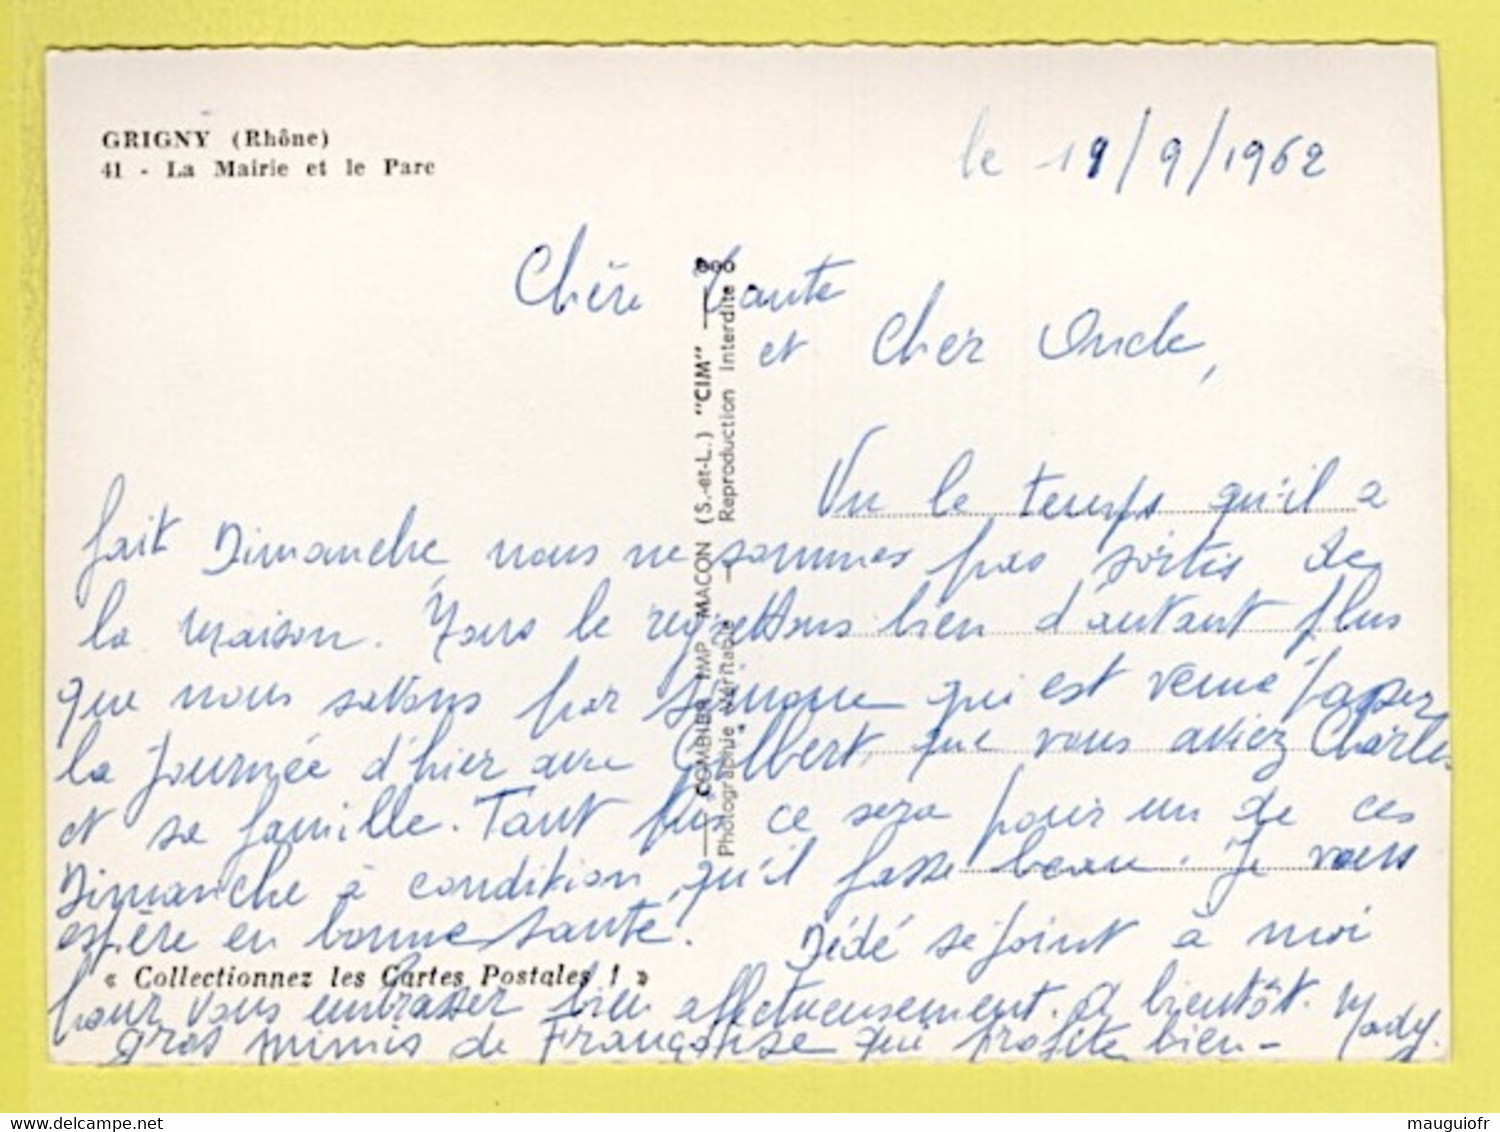 GRIGNY (Rhône)
41 - La Mairie et le Parc
le 19/9/1962
Chère Tante
et Cher Oncle,
Vu le temps qu'il a
fait Dimanche nous ne sommes pas sortis de
la maison. Nous le regrettons bien d'autant plus
que nous savons par Simone qui est venue passer
la journée d'hier avec Gilbert, que vous aviez Charles
et sa famille. Tant pis ce sera pour un de ces
Dimanche à condition qu'il fasse beau. Je vous
espère en bonne santé. Dédé se joint à moi
pour vous embrasser bien affectueusement. A bientôt. Mady.
gros mimis de Françoise qui profite bien -
« Collectionnez les Cartes Postales ! »
COMBIER IMP. MACON (S.-et-L.) "CIM"
Photographie Véritable - Reproduction Interdite
mauguiofr